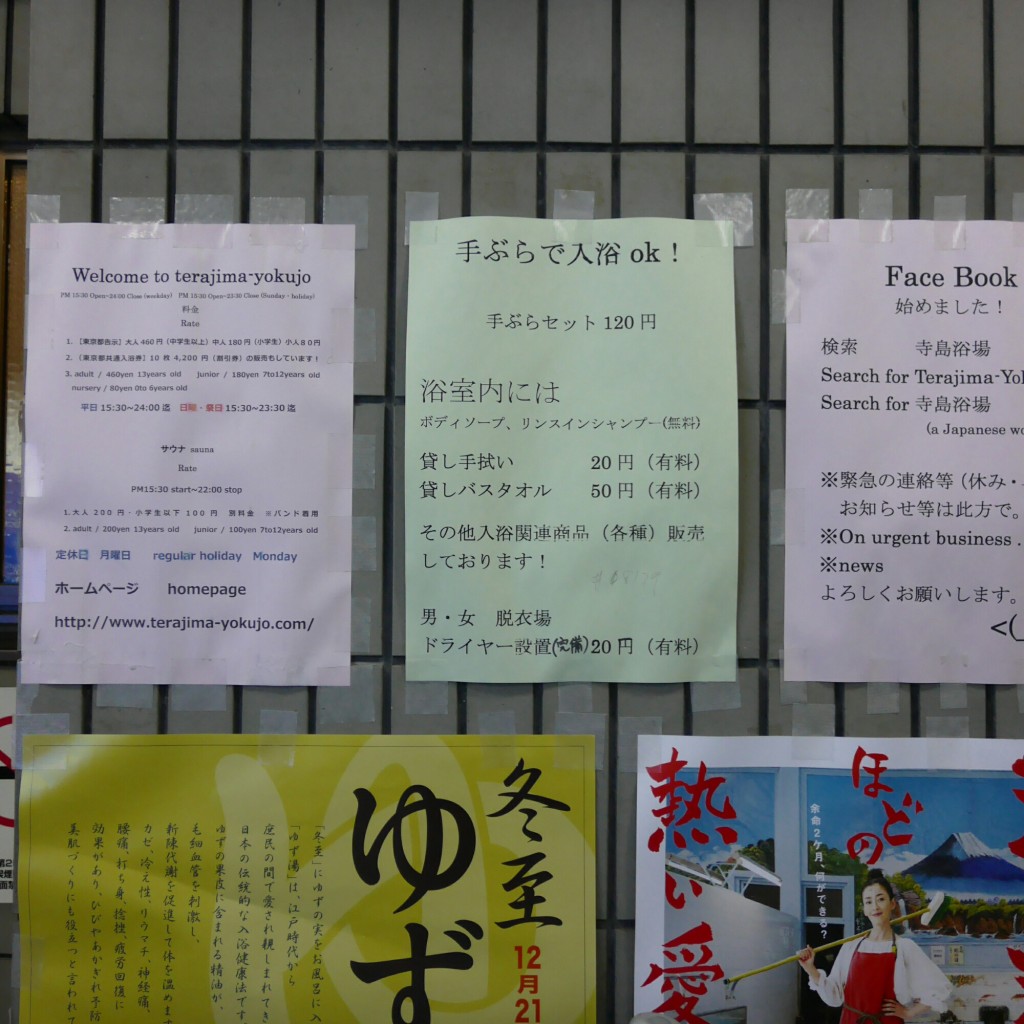 Welcome to terajima-yokujo
PM 15:30 Open~24:00 Close (weekday) PM 15:30 Open~23:30 Close (Sunday・holiday)
料金
Rate
1.［東京都告示］大人460円（中学生以上）中人180円（小学生）小人80円
2.［東京都共通入浴券］10枚4,200円（割引券）の販売もしています！
3. adult / 460yen 13years old junior / 180yen 7to12years old
nursery / 80yen 0to 6years old
平日 15:30~24:00 迄 日曜・祭日 15:30~23:30 迄
サウナ sauna
Rate
PM15:30 start~22:00 stop
1.大人 200円・小学生以下 100円 別料金 ※バンド着用
2. adult / 200yen 13years old junior / 100yen 7to12years old
定休日 月曜日 regular holiday Monday
ホームページ homepage
http://www.terajima-yokujo.com/
手ぶらで入浴 ok！
手ぶらセット 120 円
浴室内には
ボディソープ、リンスインシャンプー(無料)
貸し手拭い 20 円（有料）
貸しバスタオル 50 円（有料）
その他入浴関連商品（各種）販売
しております！
男・女 脱衣場
ドライヤー設置(完備)20 円（有料）
Face Book
始めました！
検索 寺島浴場
Search for Terajima-Yo
Search for 寺島浴場
(a Japanese wo
※緊急の連絡等（休み・
お知らせ等は此方で。
※On urgent business .
※news
よろしくお願いします。
<(_
冬至
ゆず
12月21
「冬至」にゆずの実をお風呂に入
「ゆず湯」は、江戸時代から
庶民の間で愛され親しまれてき
日本の伝統的な入浴健康法です。
ゆずの果皮に含まれる精油が、
毛細血管を刺激し、
新陳代謝を促進して体を温めます
カゼ、冷え性、リウマチ、神経痛、
腰痛、打ち身、捻挫、疲労回復に
効果があり、ひびやあかぎれ予防
美肌づくりにも役立つと言われて
熱い愛
ほどの
余命2ケ月、何ができる？